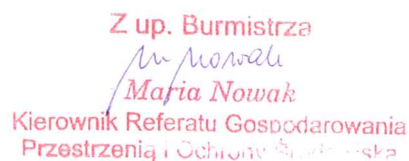 Z up. Burmistrza
M Nowak
Maria Nowak
Kierownik Referatu Gospodarowania
Przestrzenią i Ochrony